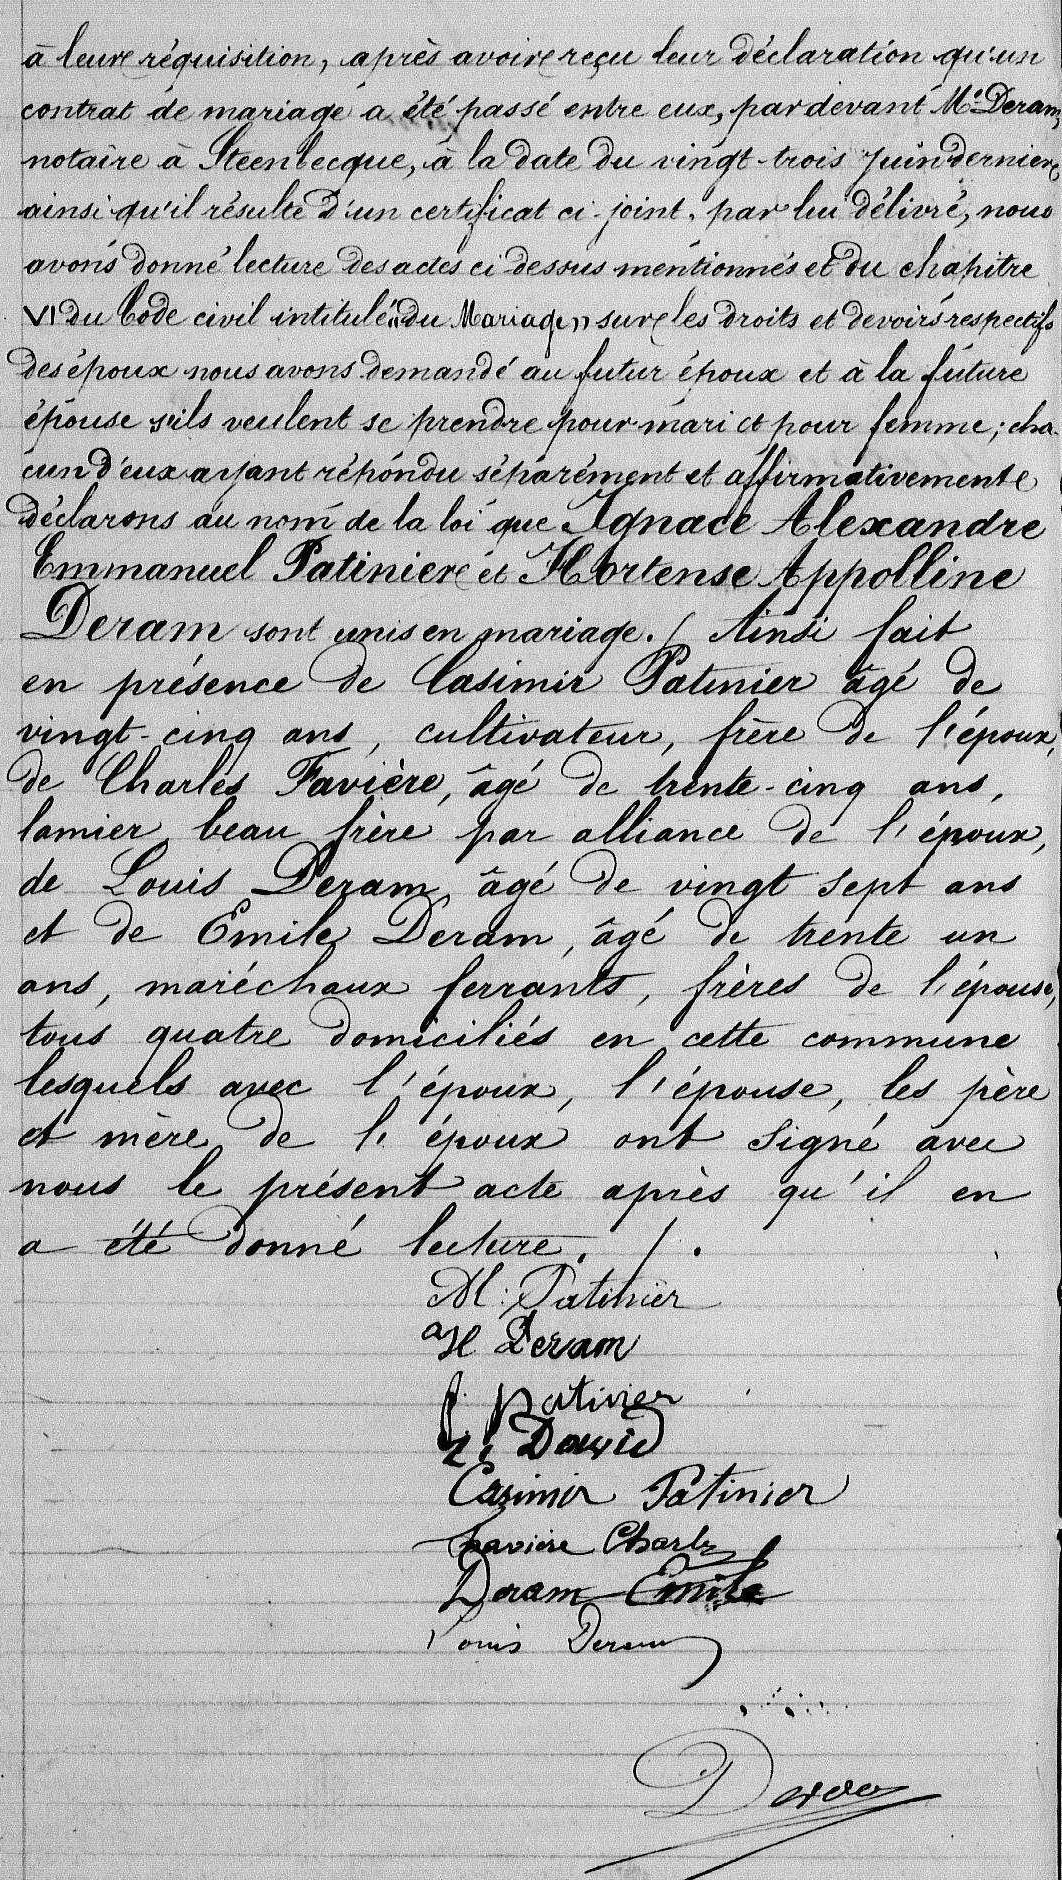 à leur réquisition, après avoir reçu leur déclaration qu'un
contrat de mariage a été passé entre eux, pardevant Me Deram,
notaire à Steenbecque, à la date du vingt-trois Juin dernier
ainsi qu'il résulte d'un certificat ci-joint, par lui délivré, nous
avons donné lecture des actes ci dessus mentionnés et du chapitre
VI du Code civil intitulé "du Mariage" sur les droits et devoirs respectifs
des époux nous avons demandé au futur époux et à la future
épouse s'ils veulent se prendre pour mari et pour femme; cha-
cun d'eux ayant répondu séparément et affirmativement
déclarons au nom de la loi que Ignace Alexandre
Emmanuel Patinier et Hortense Appolline
Deram sont unis en mariage. / Ainsi fait
en présence de Casimir Patinier âgé de
vingt-cinq ans, cultivateur, frère de l'époux,
de Charles Favière, âgé de trente-cinq ans,
lamier, beau frère par alliance de l'époux,
de Louis Deram, âgé de vingt sept ans
et de Emile Deram, âgé de trente un
ans, maréchaux ferrants, frères de l'épouse,
tous quatre domiciliés en cette commune
lesquels avec l'époux, l'épouse, les père
et mère de l'époux ont signé avec
nous le présent acte après qu'il en
a été donné lecture. /.
Patinier
aH Deram
patinier
Casimir Patinier
Charle
Deram Emile
Louis Deram